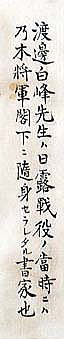 渡邊白峰先生ハ日露戰役ノ當時ニハ
乃木將軍閣下ニ隨身セラレタル書家也